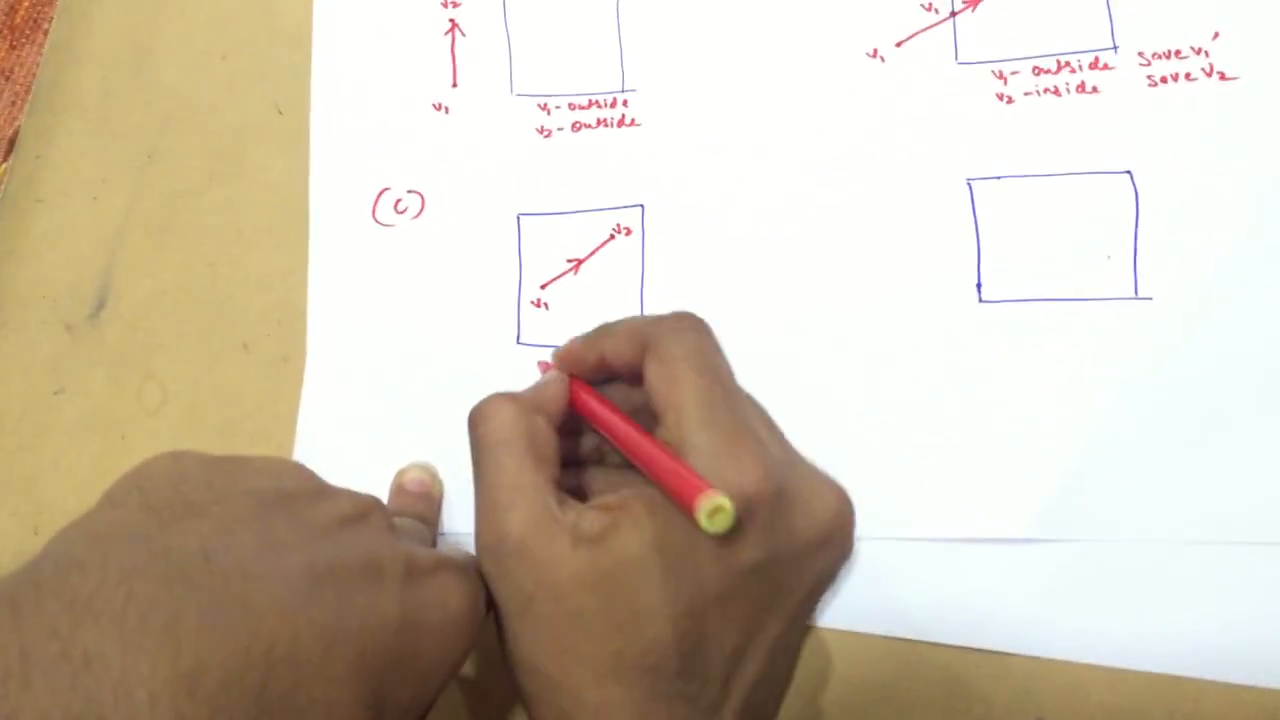 v2
v1
v1-outside
v2-outside
v1
v1
v1-outside save v1'
v2-inside save v2
(c)
v2
v1